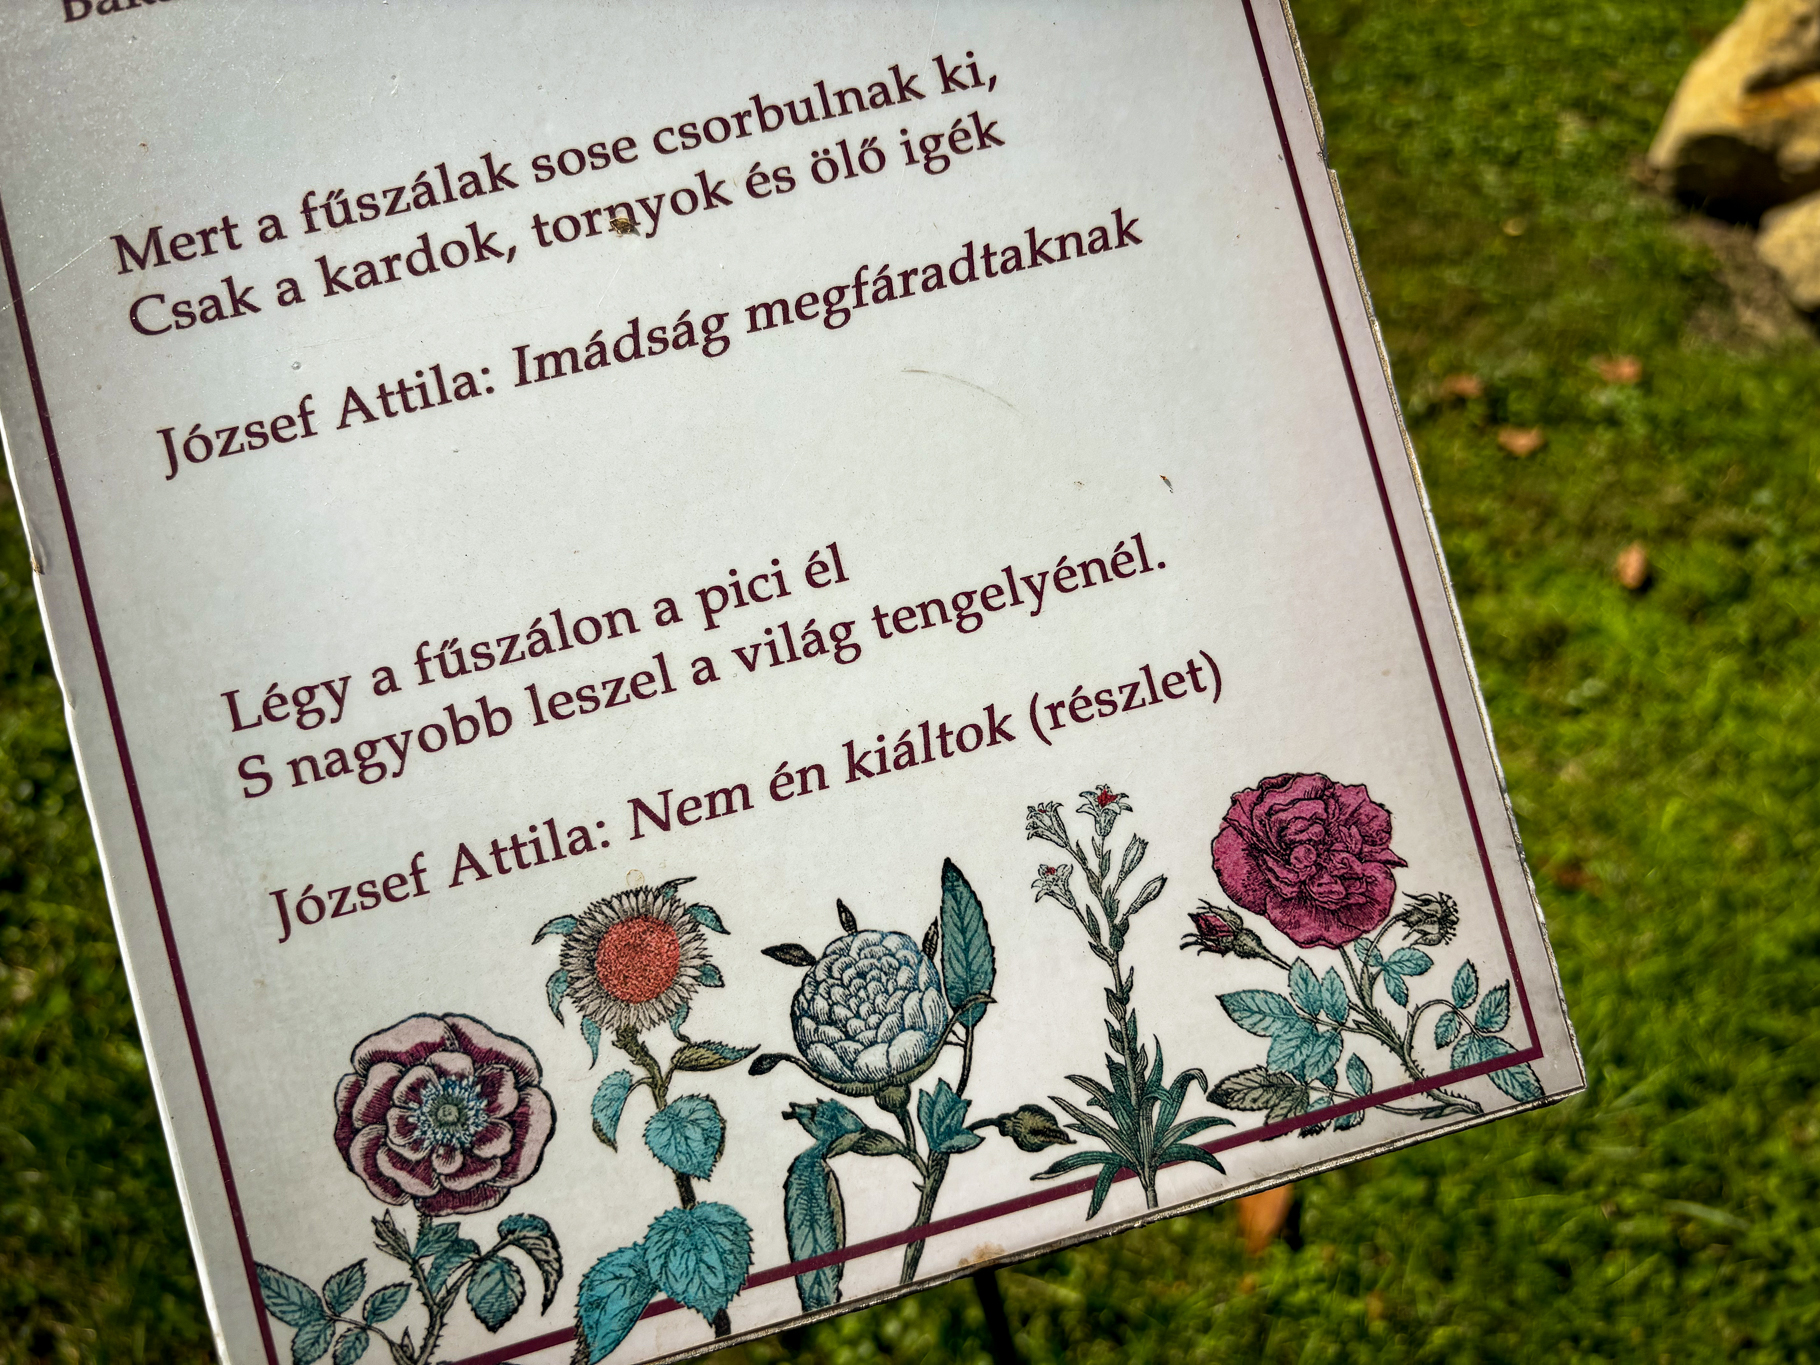 Mert a fűszálak sose csorbulnak ki,
Csak a kardok, tornyok és ölő igék
József Attila: Imádság megfáradtaknak
Légy a fűszálon a pici él
S nagyobb leszel a világ tengelyénél.
József Attila: Nem én kiáltok (részlet)